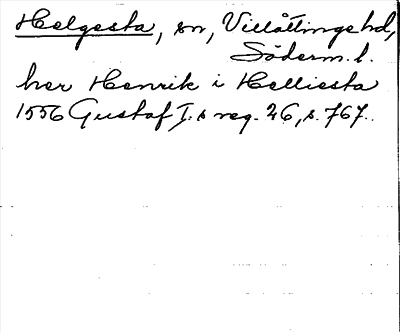 Helgesta, sn, Villåttinge hd,
Söderm. l.
her Henrik i Helliesta
1556 Gustaf I.s reg. 26, s. 767.